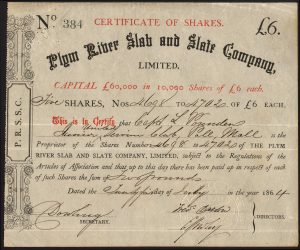 No 384 CERTIFICATE OF SHARES. £6.
Plym River Slab and Slate Company,
LIMITED.
CAPITAL £60,000 in 10,000 Shares of £6 each.
Five SHARES, Nos 4698 TO 4702 OF £6 EACH.
This is to Certify that Capt
Junior United Service Club, Pall Mall is the
Proprietor of the Shares Number 4698 to 4702 of THE PLYM
RIVER SLAB AND SLATE COMPANY, LIMITED, subject to the Regulations of the
Articles of Association and that up to this day there has been paid up in respect of each
of such Shares the sum of Two Pounds
Dated the day of July 1864
SECRETARY.
DIRECTORS.
P.R.S.S.C.